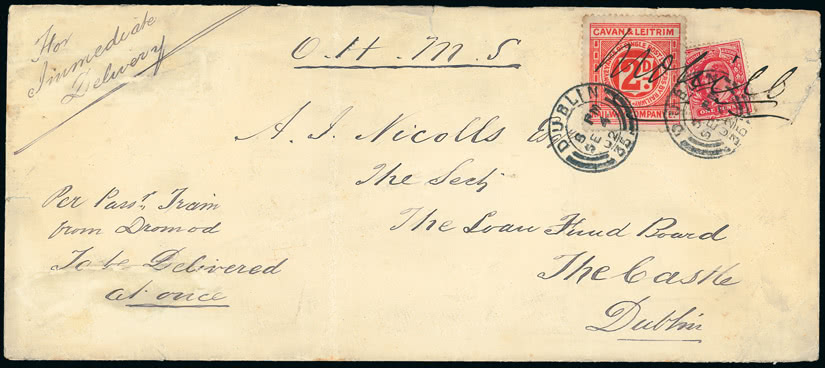 For
Immediate
Delivery
O. H. M. S
CAVAN & LEITRIM
2D.
RAILWAY COMPANY
DUBLIN
8 PM
SE
02
DUBLIN
A. J. Nicolls Esq
The Secty
The Loan Fund Board
The Castle
Dublin
Per Passr Train
from Dromod
To be Delivered
at once